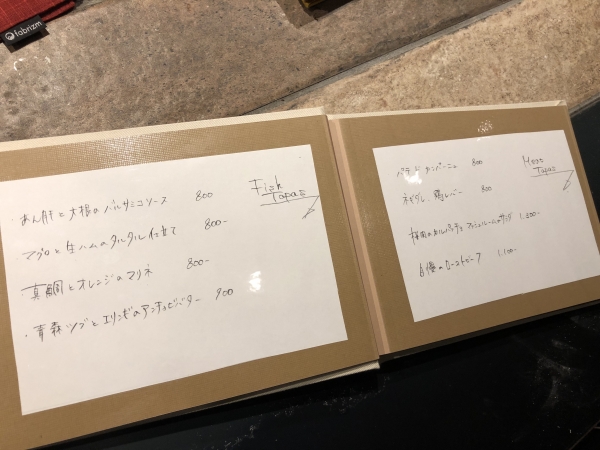 fabrizm
Fish
Tapas
・あん肝と大根のバルサミコソース 800
マグロと生ハムのタルタル仕立て 800-
真鯛とオレンジのマリネ 800-
・青森ツブとエリンギのアンチョビバター 900
Meat
Tapas
パテ・ド・カンパーニュ 800
鶏レバー 800
のカルパッチョ マッシュルームのサラダ 1.300-
自慢のローストビーフ 1.100-